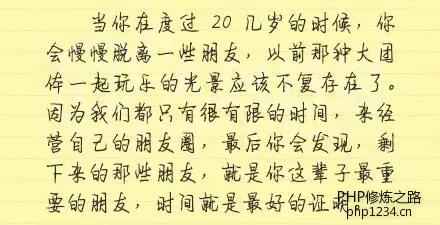 当你在度过 20 几岁的时候，你
会慢慢脱离一些朋友，以前那种大团
体一起玩乐的光景应该不复存在了。
因为我们都只有很有限的时间，来经
营自己的朋友圈，最后你会发现，剩
下来的那些朋友，就是你这辈子最重
要的朋友，时间就是最好的证明
PHP修炼之路
php1234.cn